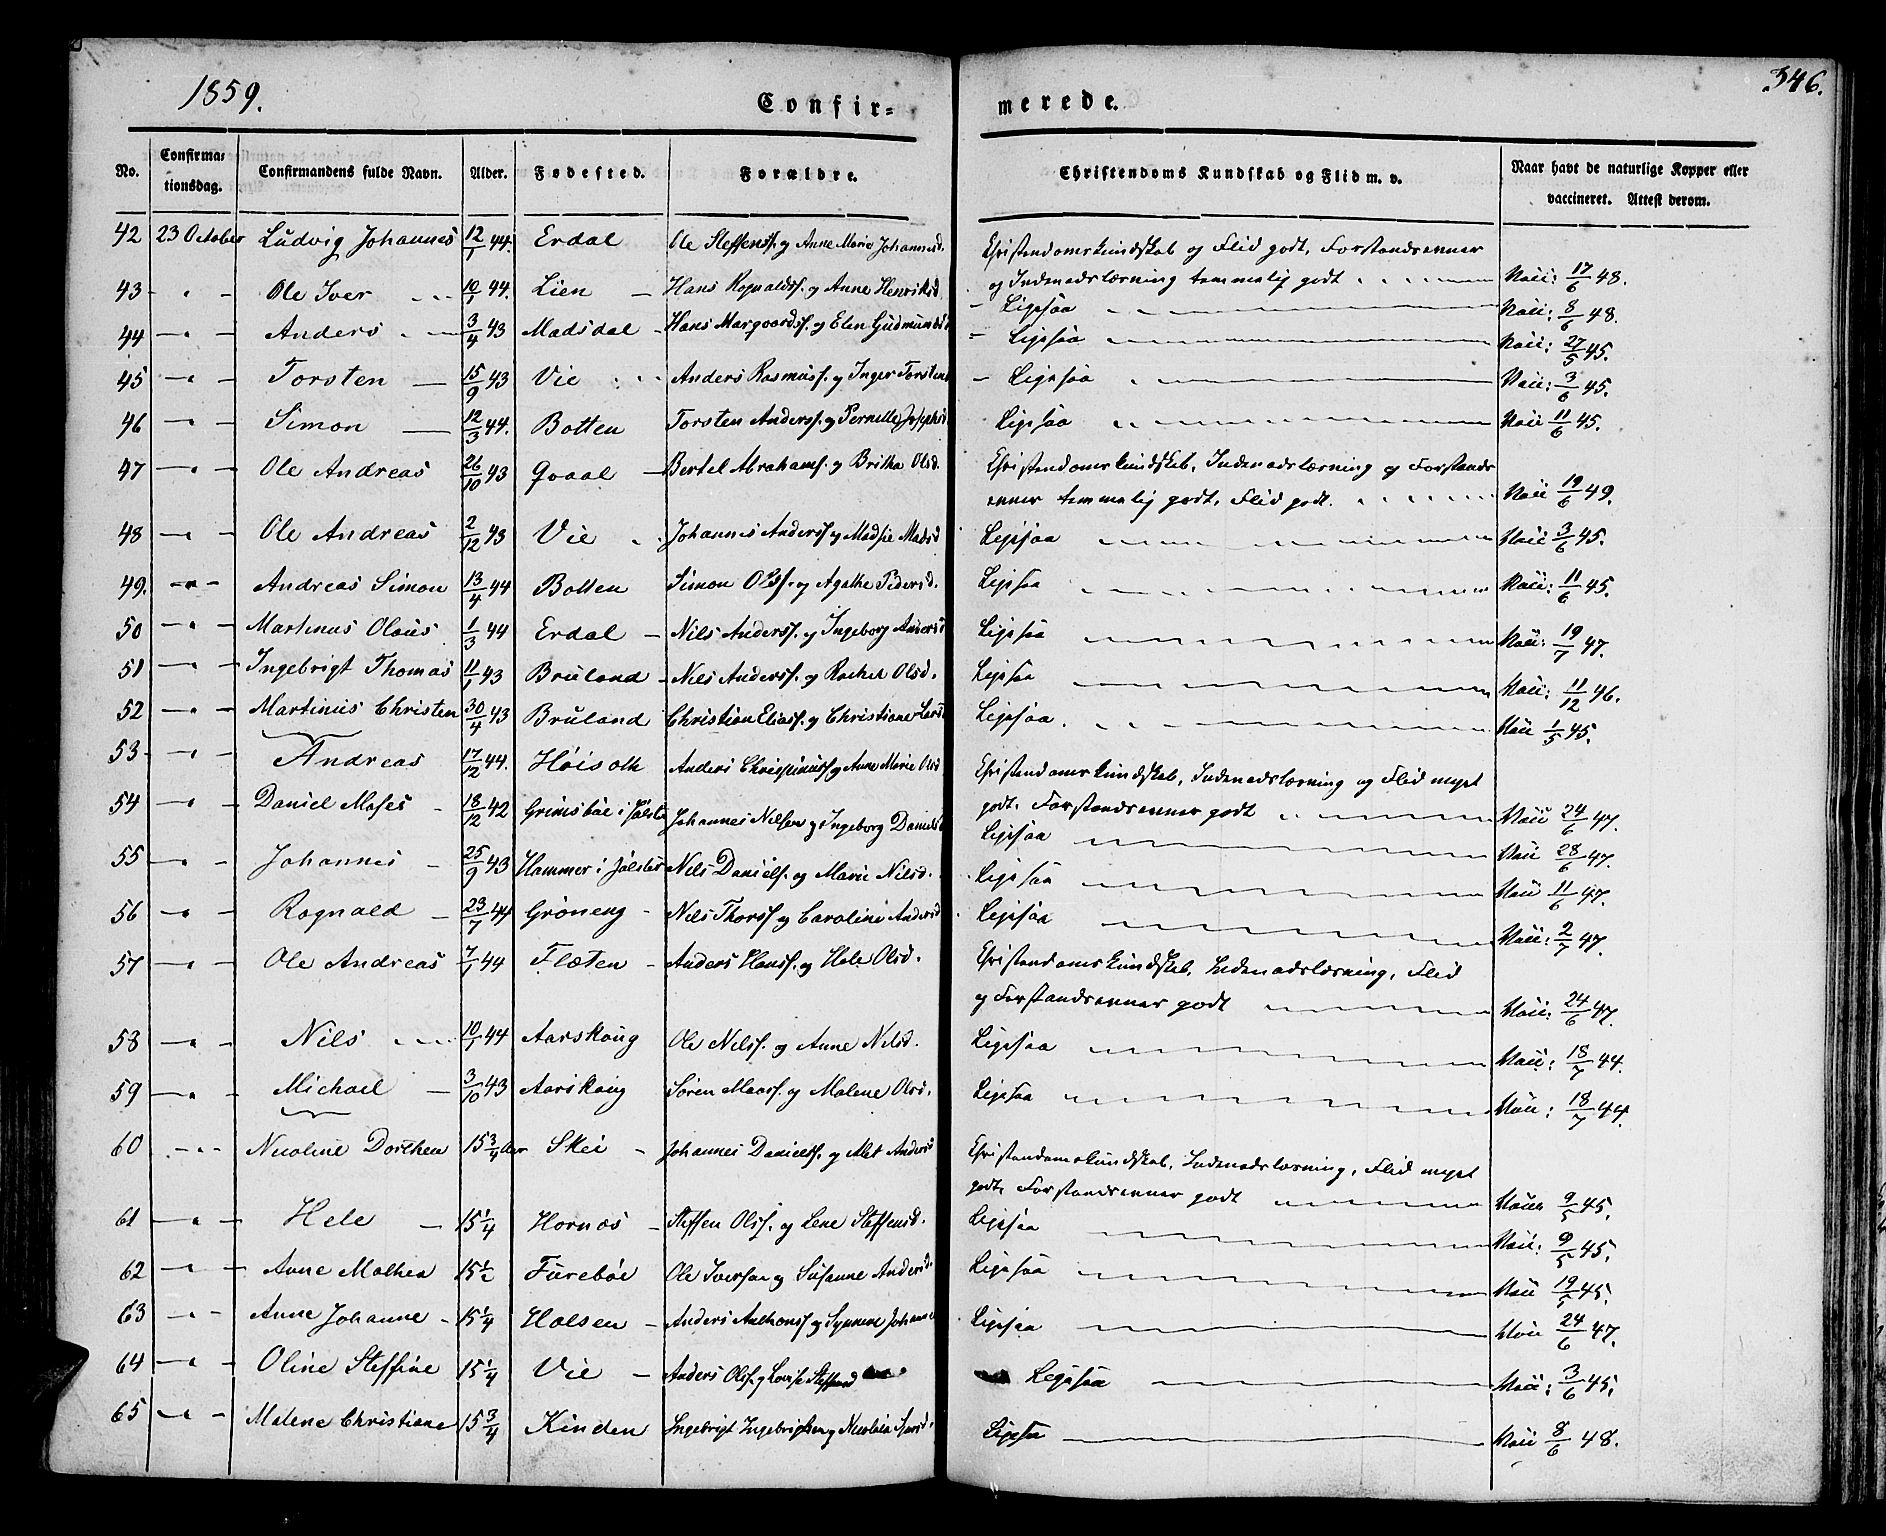 1859.
346.
Confir=
merede.
No.
Confirma=
tionsdag.
Confirmandens fulde Navn.
Alder.
Fødested.
Forældre.
Christendoms Kundskab og Flid m. v.
Naar havt de naturlige Kopper eller
vaccineret. Attest derom.
42 23 October Ludvig Johannes 12/1 44. Erdal Ole Steffenss. og Anne Marie Johannesd. Christendomskundskab og Flid godt, Forstandsevner
og Indenadslæsning temmelig godt Vacc: 17/6 48.
43 - " - Ole Iver 10/1 44. Lien - Hans Rognaldss. og Anne Henriksd. - Ligesaa Vacc: 8/6 48.
44 - " - Anders 3/4 43 Madsdal - Hans Margaardss. og Elen Gudmundsd = Ligesaa Vacc: 27/5 45.
45 - " - Torsten - 15/9 43 Vie Anders Rasmuss. og Inger Torstens - Ligesaa Vacc: 3/6 45.
46 - " - Simon - 12/3 44. Botten Torsten Anderss. og Pernille Josephsd Ligesaa Vacc 11/6 45.
47 - " - Ole Andreas 26/10 43 Qvaal - Bertel Abrahams. og Britha Olsd. Christendomskundskab, Indenadslæsning og Forstands
evner temmelig godt, Flid godt. Vacc 19/6 49.
48 - " - Ole Andreas 2/12 43 Vie Johannes Anderss og Madsie Madsd Ligesaa Vacc 3/6 45.
49. - " - Andreas Simon 13/4 44 Botten Simon Olss. og Agathe Pedersd. Ligesaa Vacc: 11/6 45.
50 - " - Martinus Olaus 1/3 44 Erdal - Nils Anderss. og Ingeborg Andersd Ligesaa Vacc: 19/7 47.
51 - " - Ingebrigt Thomas 11/1 43 Bruland - Nils Anderss. og Rachel Olsd. Ligesaa Vacc: 11/12 46.
52 - " - Martinus Christen 30/4 43 Bruland Christian Eliass. og Christiane Larsd Ligesaa. Vacc 1/5 45.
53 - " - Andreas 17/12 44. Høisæth Anders Chrispinuss og Anne Marie Olsd Christendomskundskab, Indenadslæsning og Flid meget
godt, Forstandsevner godt Vacc 24/6 47.
54 - " - Daniel Moses - 18/12 42 Grimsbøe i Jølster Johannes Nilsen og Ingeborg Danielsd Ligesaa Vacc 28/6 47.
55 - " - Johannes - 25/9 43 Hammer i Jølster Nils Daniels. og Marie Nilsd. Ligesaa Vacc 11/6 47.
56 - " - Rognald - 23/7 44 Grøneng - Nils Thorss. og Caroline Andersd Ligesaa Vacc: 2/7 47.
57 - " - Ole Andreas 7/1 44 Flæten - Anders Hanss. og Hele Olsd. Christendomskundskab, Indenadslæsning, Flid
og Forstandsevner godt Vacc: 24/6 47.
58 - " - Nils 10/1 44 Aarskoug Ole Nilss. og Anne Nilsd. Ligesaa Vacc: 18/7 44.
59 - " - Michael - 3/10 43 Aarskoug Søren Maass. og Malene Olsd. Ligesaa Vacc: 18/7 44.
60 - " - Nicoline Dorthea 15 3/4 Aar Skei - Johannes Danielss. og Alet Andersd Christendomskundskab, Indenadslæsning, Flid meget
godt, Forstandsevner godt Vacc 9/5 45.
61 - " - Hele - 15 1/4 Hornæs - Steffen Olss. og Lene Steffensd. Ligesaa Vacc: 9/5 45.
62 - " - Anne Mathea 15 1/2 Furebøe Ole Iversen og Susanne Andersd. Ligesaa Vacc 19/5 45.
63 - " - Anne Johanne - 15 1/4 Holsen - Anders Anthons. og Synneve Johanne Ligesaa Vacc 24/6 47.
64 - " - Oline Steffine 15 1/4 Vie - Anders Olss. og Lovise Steffensd Ligesaa Vacc: 3/6 45.
65 - " - Malene Christiane 15 3/4 Kinden Ingebrigt Ingebrigtsen og Nicolaia Ligesaa Vacc 8/6 48.